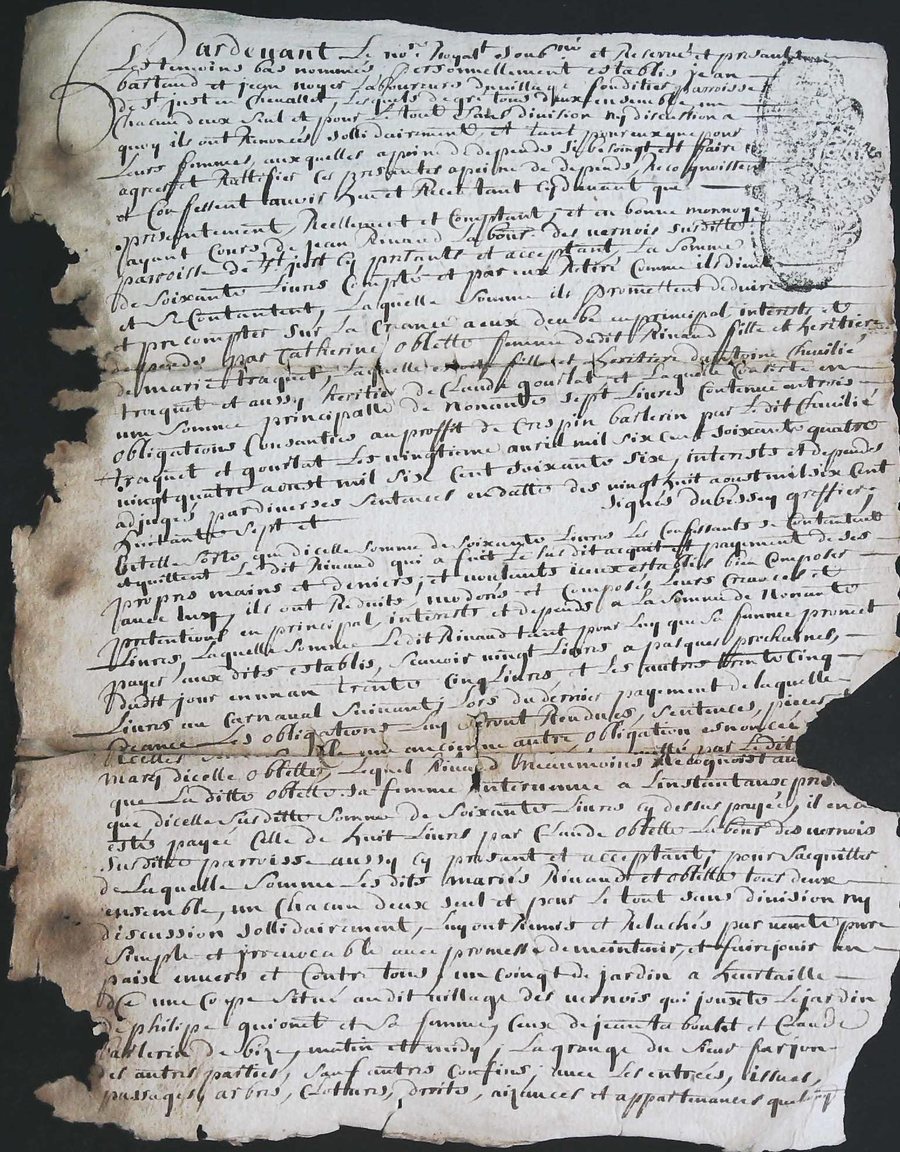 Pardevant Le no.re Royal soub.né et Reservé et presants
Les temoins bas nommés personnellement establis jean
bartaud et jean noyer Laboureurs du village fonditier parroisse
de st just en Chevallet, Lesquels de gré tous deux ensemble un
Chacun deux seul et pour le tout sans division ny discussion a
quoy ils ont Renoncés sollidairement, et tant pour eux que pour
Leurs femmes, auxquelles a peine de despends se besoingt est faire
agreer et Rattifier Ces presentes a peine de despends, Recognoissent
et Confessent avoir heu et Receu tant cy devant que
presentement, Reellement et Comptant, et en bonne monnoye
ayant Cours de jean Rinaud Labour. des vernois susditte
parroisse de st just cy presants et acceptant La somme
de soixante Livres Compté et par eux Retiré Comme ils dient
et se Contantent, Laquelle somme ils promettent deduire
et precompter sur La Creance a eux deube en principal interests et
despends par Catherine oblette femme dudit Rinaud fille et heritiere
de marie traquet, Laquelle fille et heritiere dantoine Chevilié
traquet et aussy heritier de Claude gourlat et Laquelle Consiste en
une somme principalle de Nonante sept Livres Contenue en trois
obligations Consanties au proffit de Crespin barlerin par Ledit Chevilié
traquet et gourlat Les vingtieme avril mil six Cent soixante quatre
vingt quatre aoust mil six Cent soixante six, interests et despends
adjugés par diverses sentences en datte des vingt huit aoust mil six Cent
huitante sept et signés dubessey greffier,
Detelle sorte que dicelle somme de soixante Livres Les Confessants se Contantent
et quittent Ledit Rinaud qui a fait Le susdit acquit et payement de ses
propres mains et deniers, et voulants iceux establis bien Composer
avec Luy, ils ont Reduits, moderés et Composés Leurs Creances et
pretentions en principal, interests et despends a La somme de Nonante
Livres, Laquelle somme Ledit Rinaud tant pour Luy que sa femme promet
payer aux dits establis, scavoir vingt Livres a pasques prochaines,
dudit jour en un an trente Cinq Livres et Les autres trente Cinq
Livres au Carnaval suivant, Lors du dernier payement de laquelle
Creance Les obligations Luy seront Rendues, sentences, pieces
icelles une ancienne autre obligation esnoncée
marq dicelle oblette, Lequel Rinaud Neanmoins Recognoist
que La ditte oblette sa femme intervenue a Linstant aux
que dicelle susditte somme de soixante Livres cy dessus payée, il en a
estés payée Celle de huit Livres par Claude oblette Labour des vernois
susditte parroisse aussy cy presant et acceptant, pour sacquitter
de Laquelle somme Lesdits mariés Rinaud et oblette tous deux
ensemble, un Chacun deux seul et pour Le tout sans division ny
discussion sollidairement, Luy ont Remis et Relachés par vente pure
simple et irrevocable avec promesse de meintenir, et faire jouir en
paix envers et Contre tous, un Coingt de jardin a heurtaille
une Coupe Situé au dit village des vernois qui jouxte Le jardin
de philipe guionet et sa femme, Ceux de jean ta boulet et Claude
barlerin de bize, matin et midy, La grange du Sieur farjon
des autres parties, sauf autres Confins, avec Les entrées, issues,
passages, arbres, Clotures, droits, aizances et appartenances